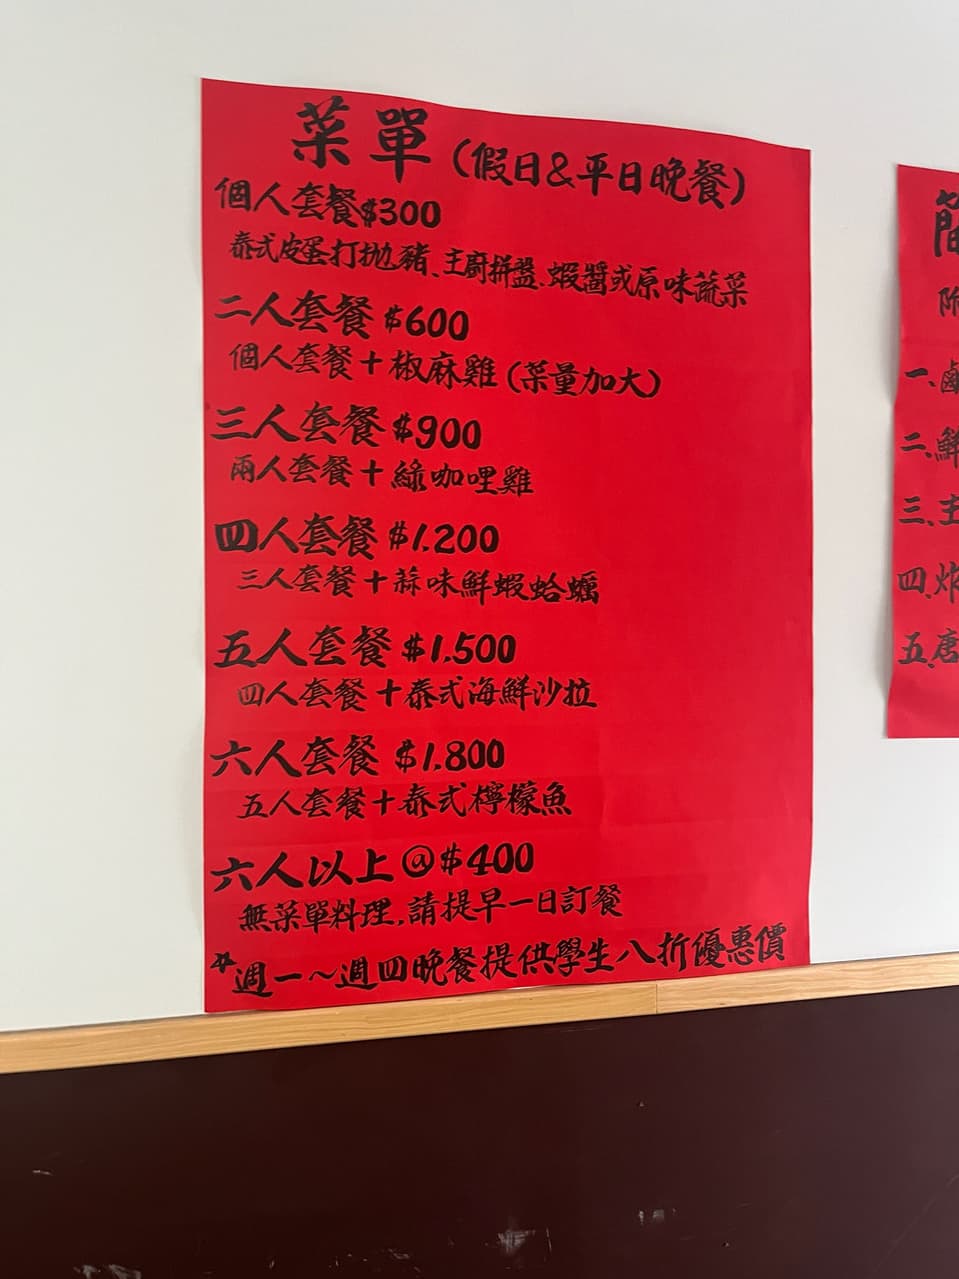 菜單(假日&平日晚餐)
個人套餐$300
泰式皮蛋打拋豬、主廚拼盤、蝦醬或原味蔬菜
二人套餐 $600
個人套餐+椒麻雞(菜量加大)
三人套餐 $900
兩人套餐+綠咖哩雞
四人套餐 $1.200
三人套餐+蒜味鮮蝦蛤蠣
五人套餐 $1.500
四人套餐+泰式海鮮沙拉
六人套餐 $1.800
五人套餐+泰式檸檬魚
六人以上@$400
無菜單料理,請提早一日訂餐
*週一~週四晚餐提供學生八折優惠價
簡
附
一、鹵
二、鮮
三、主
四、炸
五、唐